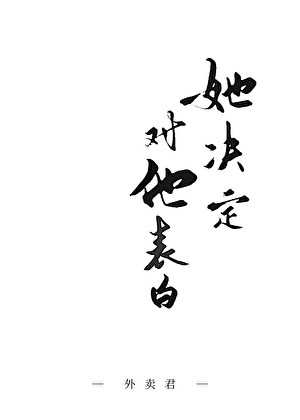 她决定
对他表白
— 外卖君 —